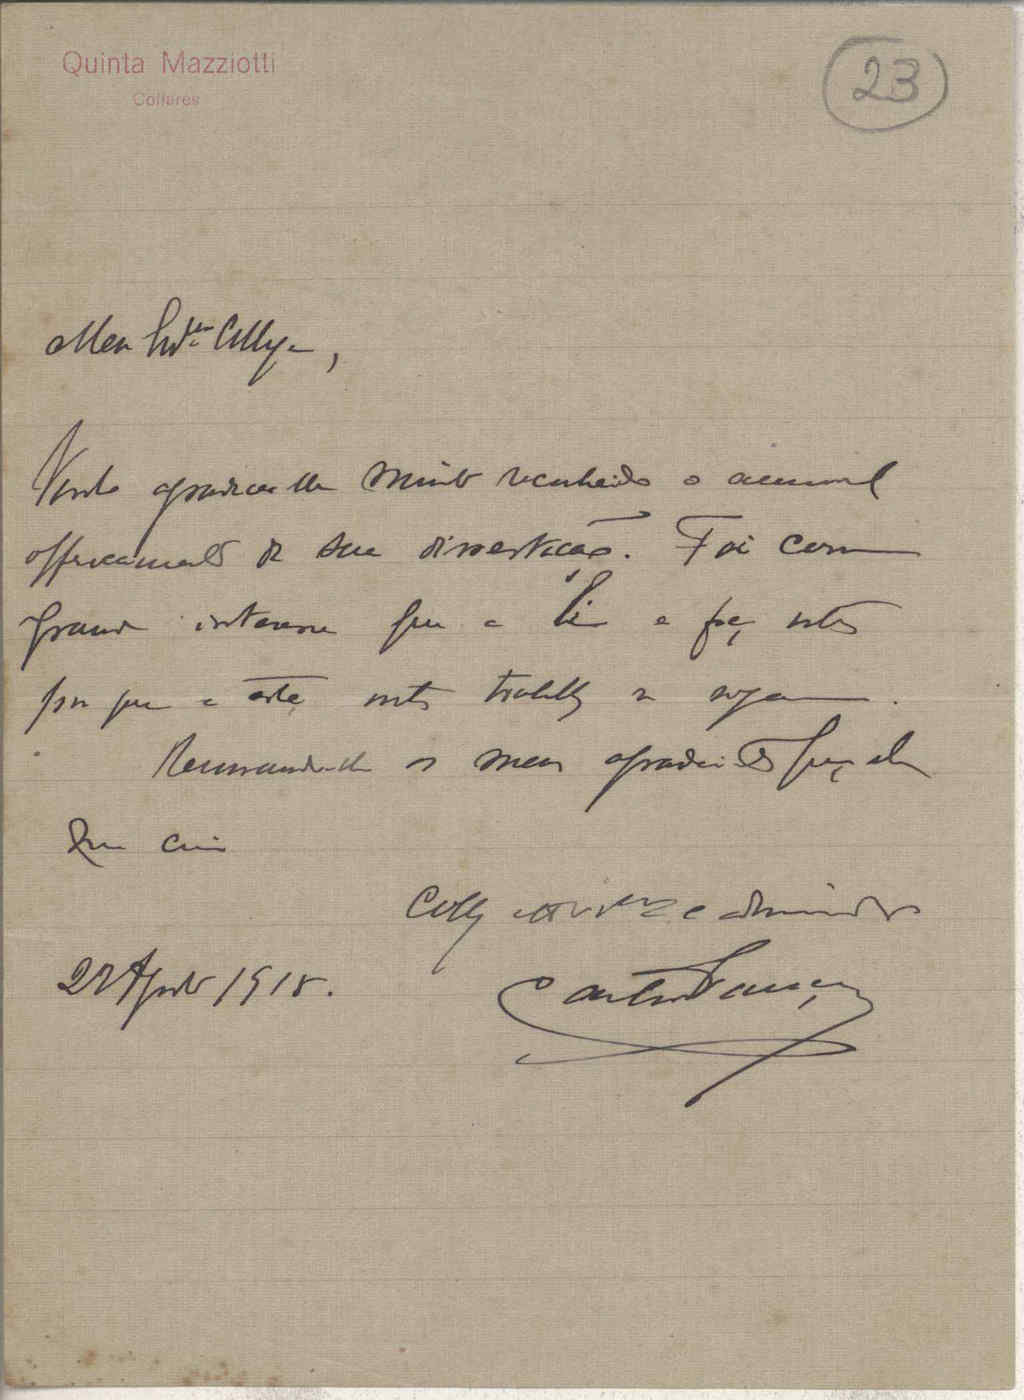 Quinta Mazziotti
Collares
23
Meu Collega,
Venho agradecer-lhe muito reconhecido o amavel
offerecimento de sua dissertação. Foi com
grande interesse que a li e faço votos
por que a este outros trabalhos se sigam.
Renovando-lhe os meus agradecimentos
crea
Coll e admirador
Agosto 1918.